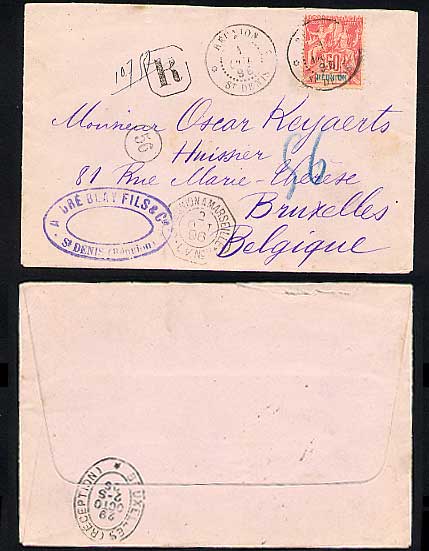 RÉUNION
1
96
ST DENIS
50
RÉUNION
R
Monsieur Oscar Keyaerts
56
Huissier
86
81 Rue Marie-Thérèse
Bruxelles
Belgique
FILS & Cie
St DENIS (Réunion)
MARSEILLE
2
96
BRUXELLES (RÉCEPTION)
29
OCTO
96